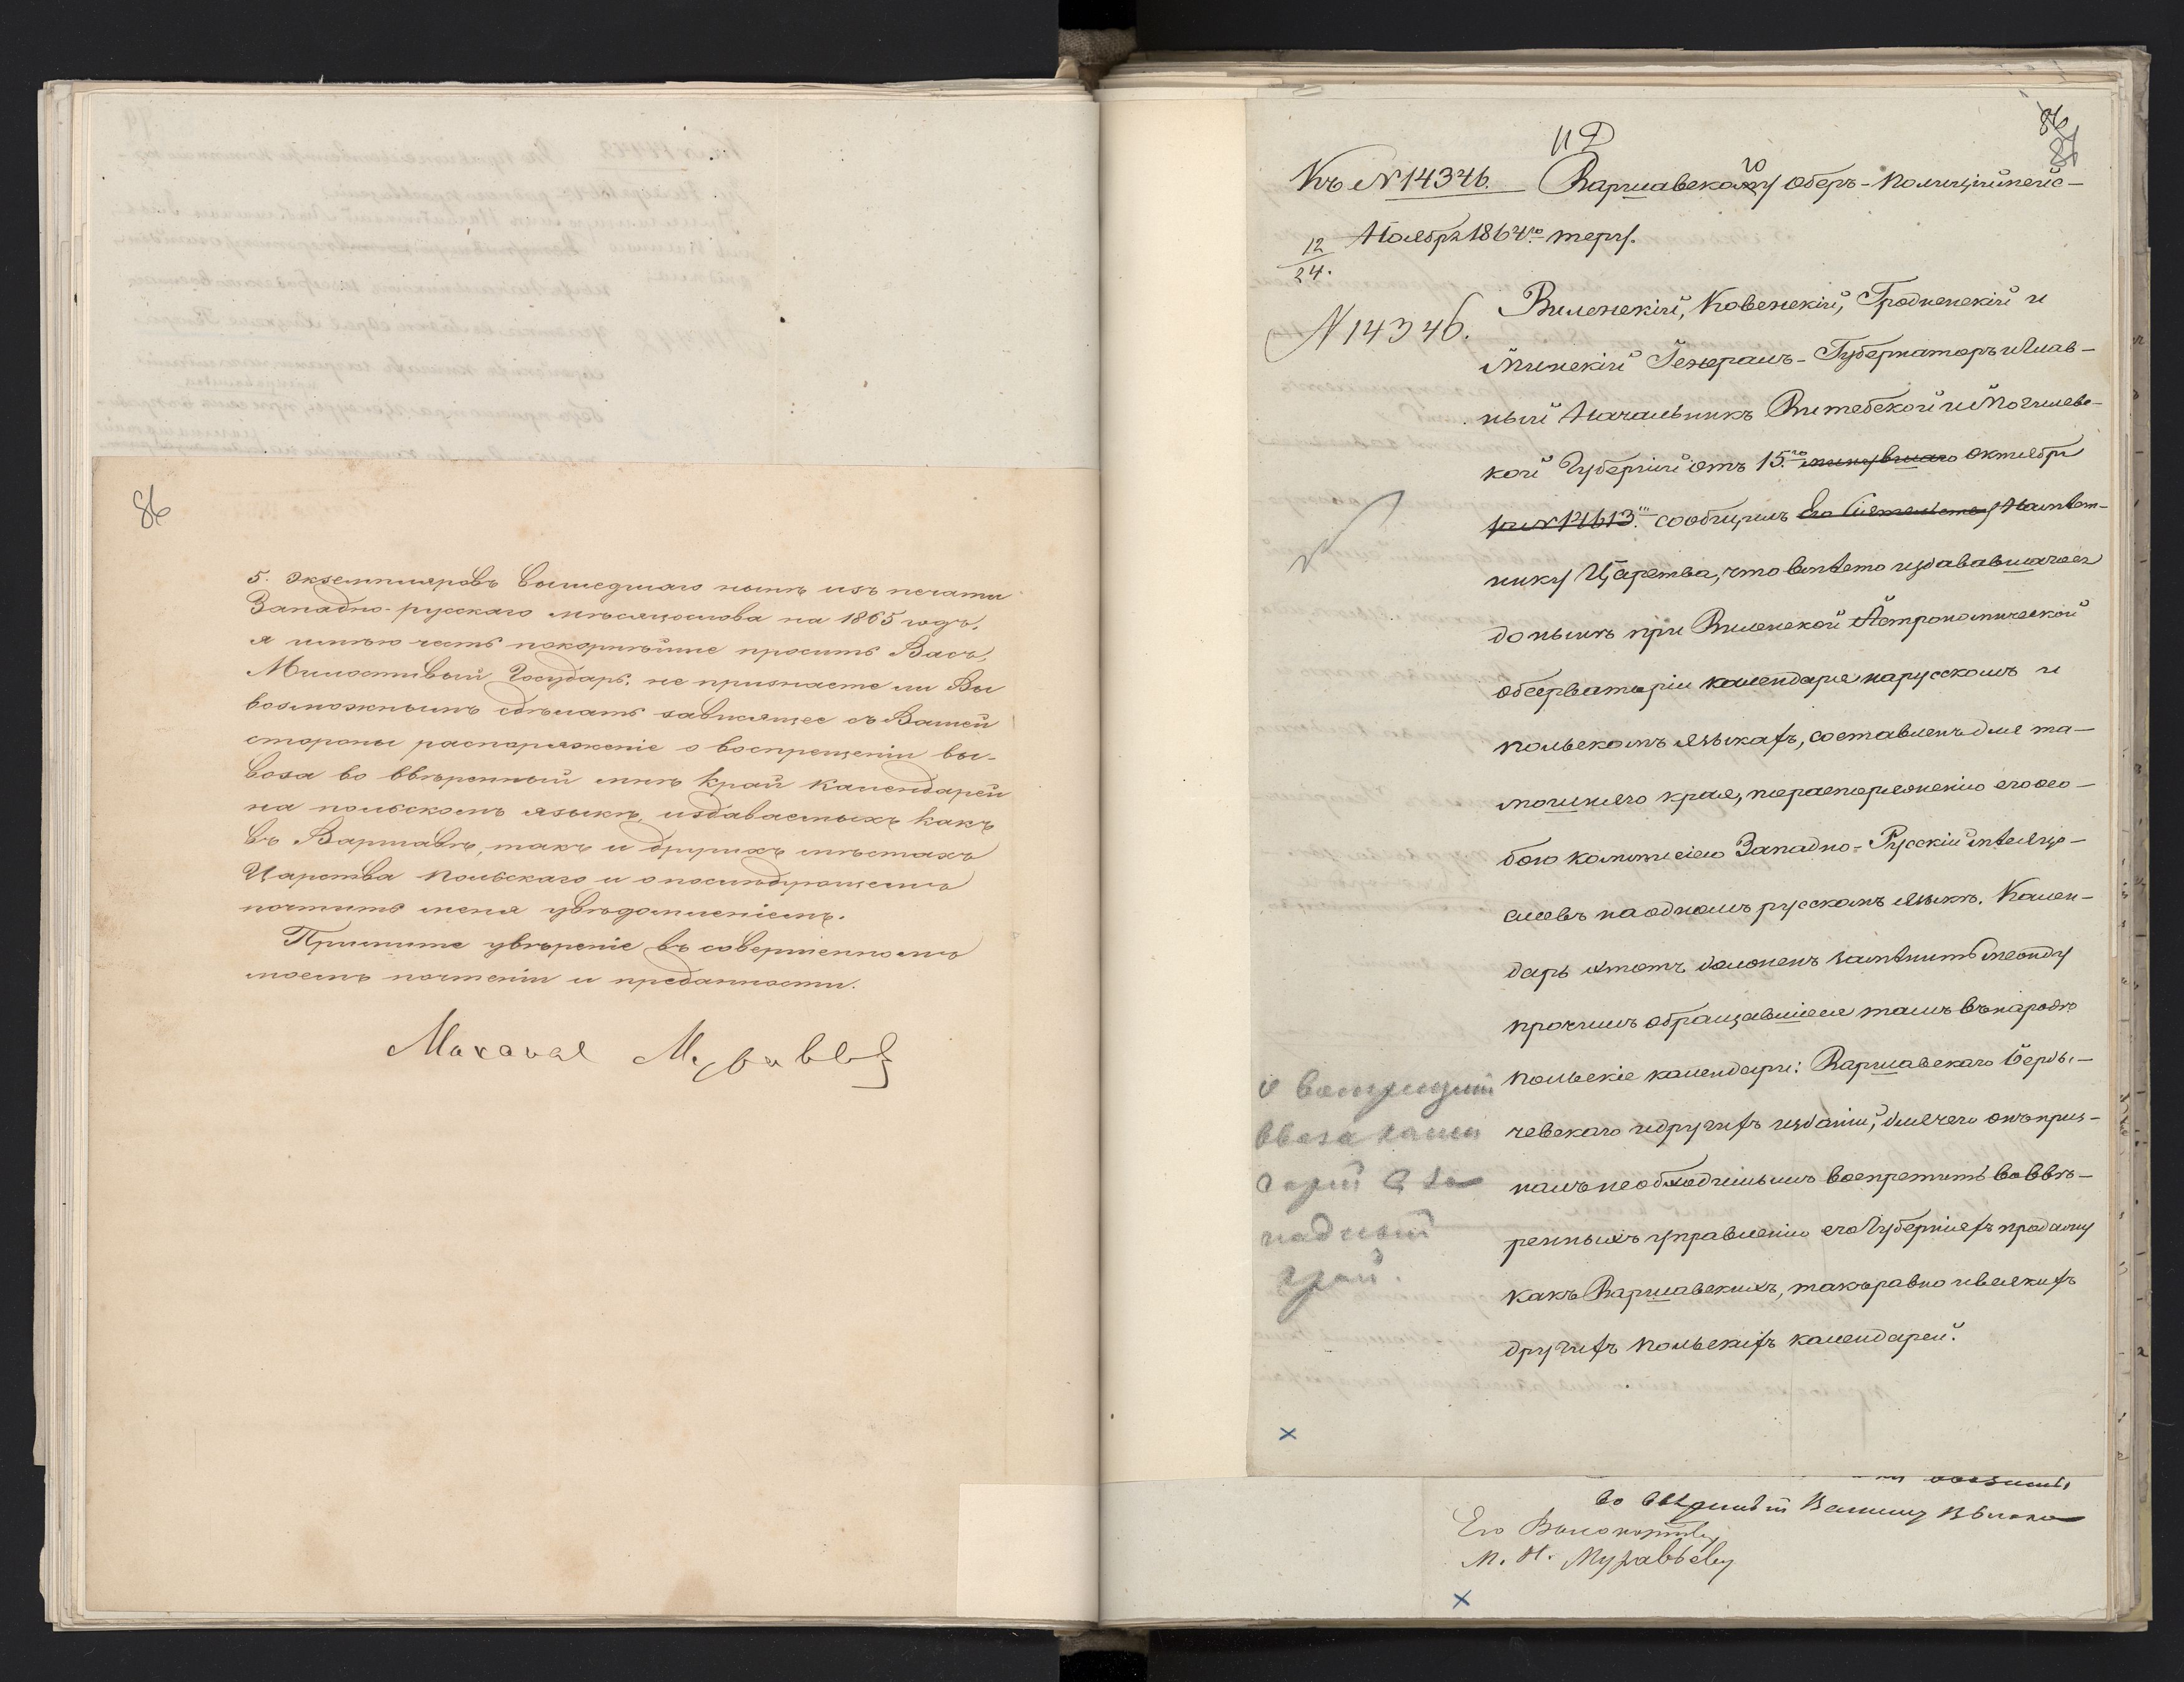 86
5. экземпляровъ вышедшаго нынѣ изъ печати
Западно-русскаго мѣсяцослова на 1865 годъ,
я имѣю честь покорнѣйше просить Васъ,
Милостивый Государь, не признаете ли Вы
возможнымъ сдѣлать зависящее съ Вашей
стороны распоряженіе о воспрещеніи вы-
воза во ввѣренный мнѣ край календарей
на польскомъ языкѣ, издаваемыхъ какъ
въ Варшавѣ, такъ и другихъ мѣстахъ
Царства Польскаго и о послѣдующемъ
почтить меня увѣдомленіемъ.
Примите увѣреніе въ совершенномъ
моемъ почтеніи и преданности.
86
87
Къ № 14346.
Ноября 1864го
12
24.
№ 14346.
Виленскій, Ковенскій, Гродненскій и
Минскій Генералъ-Губернаторъ и Глав-
ный Начальникъ Витебской и Могилевс-
кой Губерній отъ 15.го минувшаго октября
за № 12613. сообщилъ Его Сіятельству Намѣст-
нику Царства, что вмѣсто издававшагося
до нынѣ при Виленской Астрономической
обсерваторіи календаря на русскомъ и
польскомъ языкахъ, составленъ для та-
мошняго края, по распоряженію его осо-
бою коммисіею Западно-Русскій мѣсяцо-
словъ на одномъ русскомъ языкѣ. Кален-
дарь этотъ долженъ замѣнить между
прочимъ обращавшіеся тамъ въ народѣ
польскіе календари: Варшавскаго Берди-
чевскаго и другихъ изданій, для чего онъ приз-
налъ необходимымъ воспретить во ввѣ-
ренныхъ управленію его Губерніяхъ продажу
какъ Варшавскихъ, такъ равно и всякихъ
другихъ польскихъ календарей.
О воспрещеніи
ввоза кален
дарей въ За
падный
край.
Его Высокопрев.
М. Н. Муравьеву